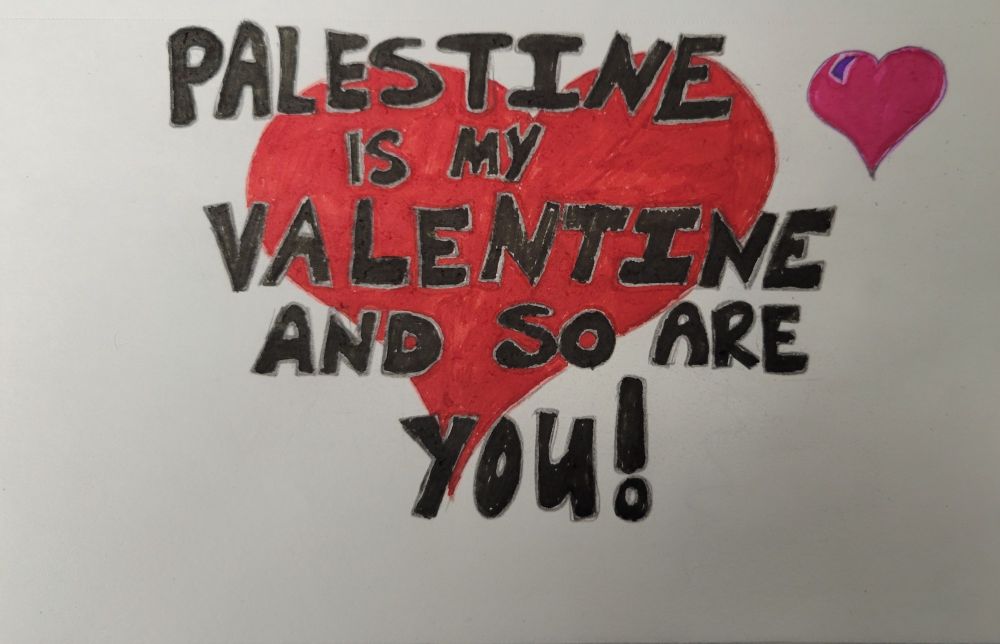 PALESTINE
IS MY
VALENTINE
AND SO ARE
YOU!